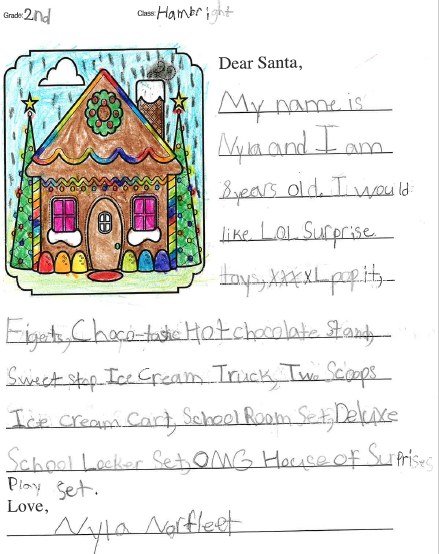 Grade: 2nd Class: Hambright
Dear Santa,
My name is
Nyla and I am
8 years old. I would
like Lol Surprise
toys, xxxxL pop it,
Figets, Choco-tastic Hot chocolate Stand,
Sweet stop Ice Cream Truck, Two Scoops
Ice cream Cart, School Room Set, Deluxe
School Locker Set, OMG House of Surprises
Play Set.
Love,
Nyla Norfleet